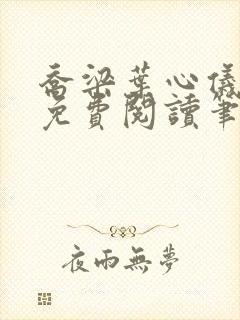 喬梁葉心儀
免費閱讀筆
夜雨無夢